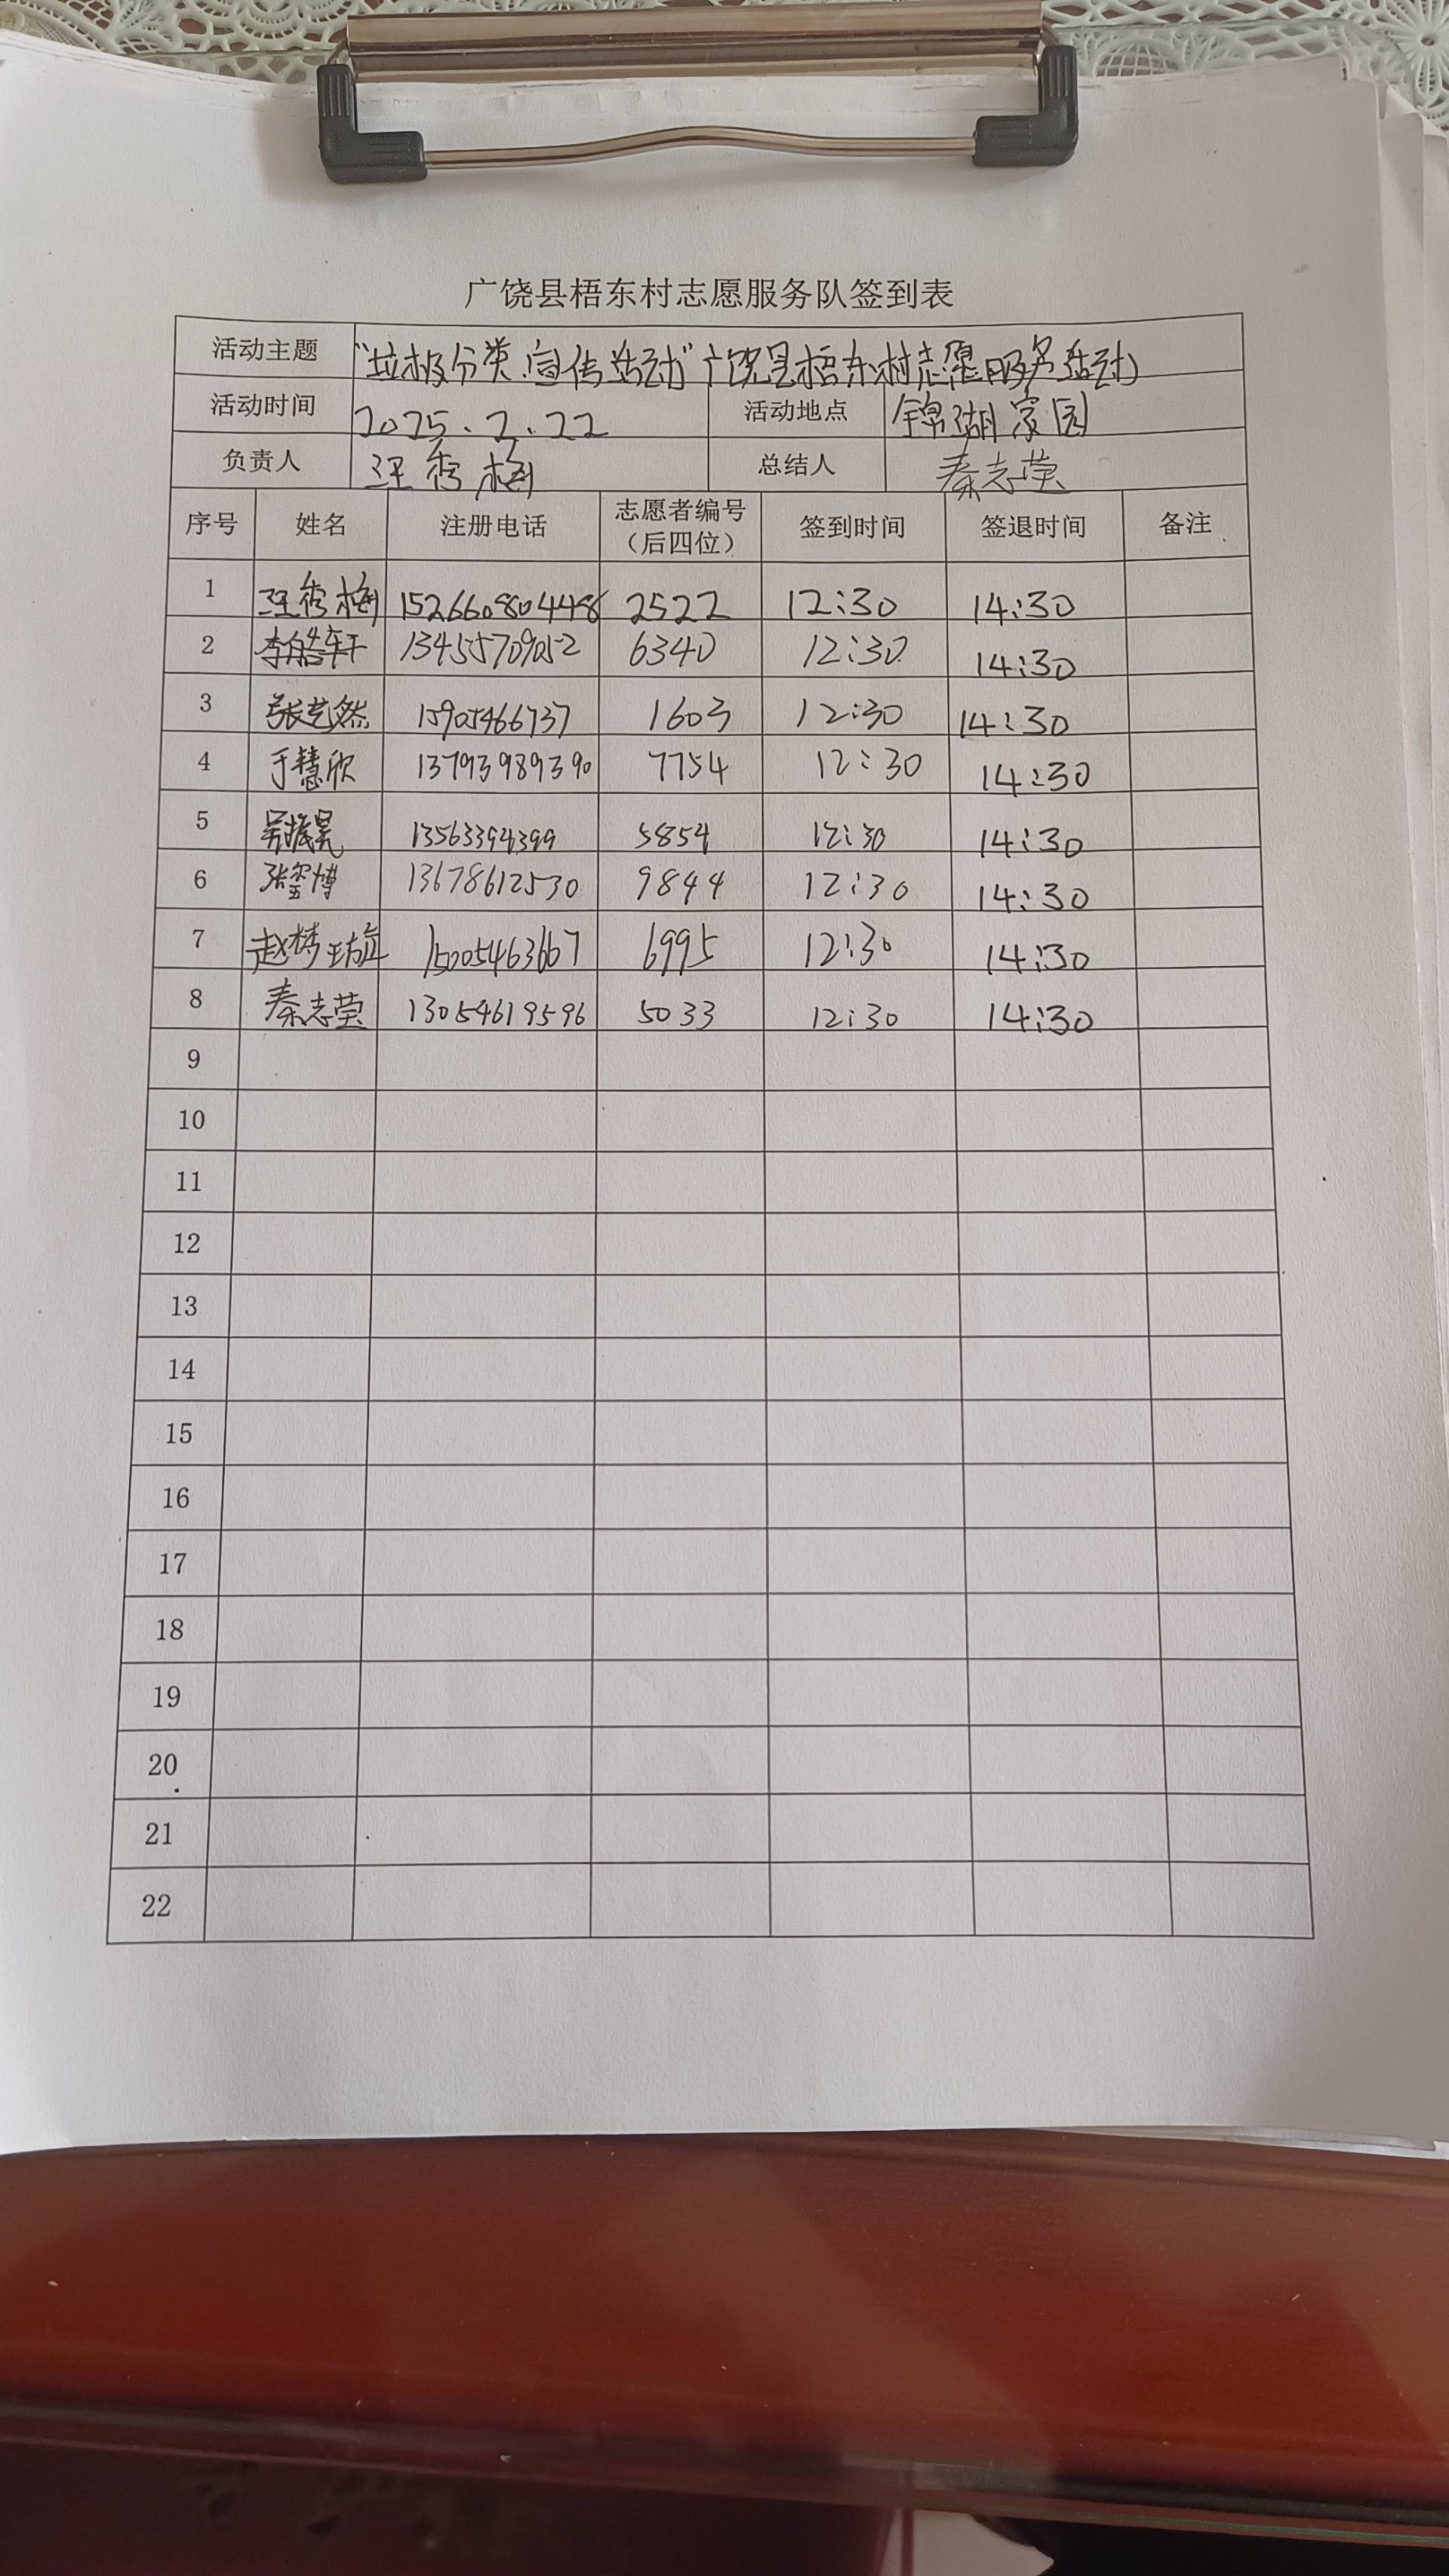 广饶县梧东村志愿服务队签到表
活动主题 "垃圾分类.宣传活动"广饶县梧东村志愿服务活动
活动时间 2025.2.22 活动地点 锦湖家园
负责人 汪秀梅 总结人 秦志莹
序号 姓名 注册电话 志愿者编号（后四位） 签到时间 签退时间 备注
1 汪秀梅 152660804448 2522 12:30 14:30
2 李皓轩 13455709052 6340 12:30 14:30
3 张艺然 15905466737 1603 12:30 14:30
4 于慧欣 13793989390 7754 12:30 14:30
5 13563394399 5854 12:30 14:30
6 张玺博 13678612530 9844 12:30 14:30
7 赵梦 15005463667 6995 12:30 14:30
8 秦志莹 13054619596 5033 12:30 14:30
9
10
11
12
13
14
15
16
17
18
19
20
21
22